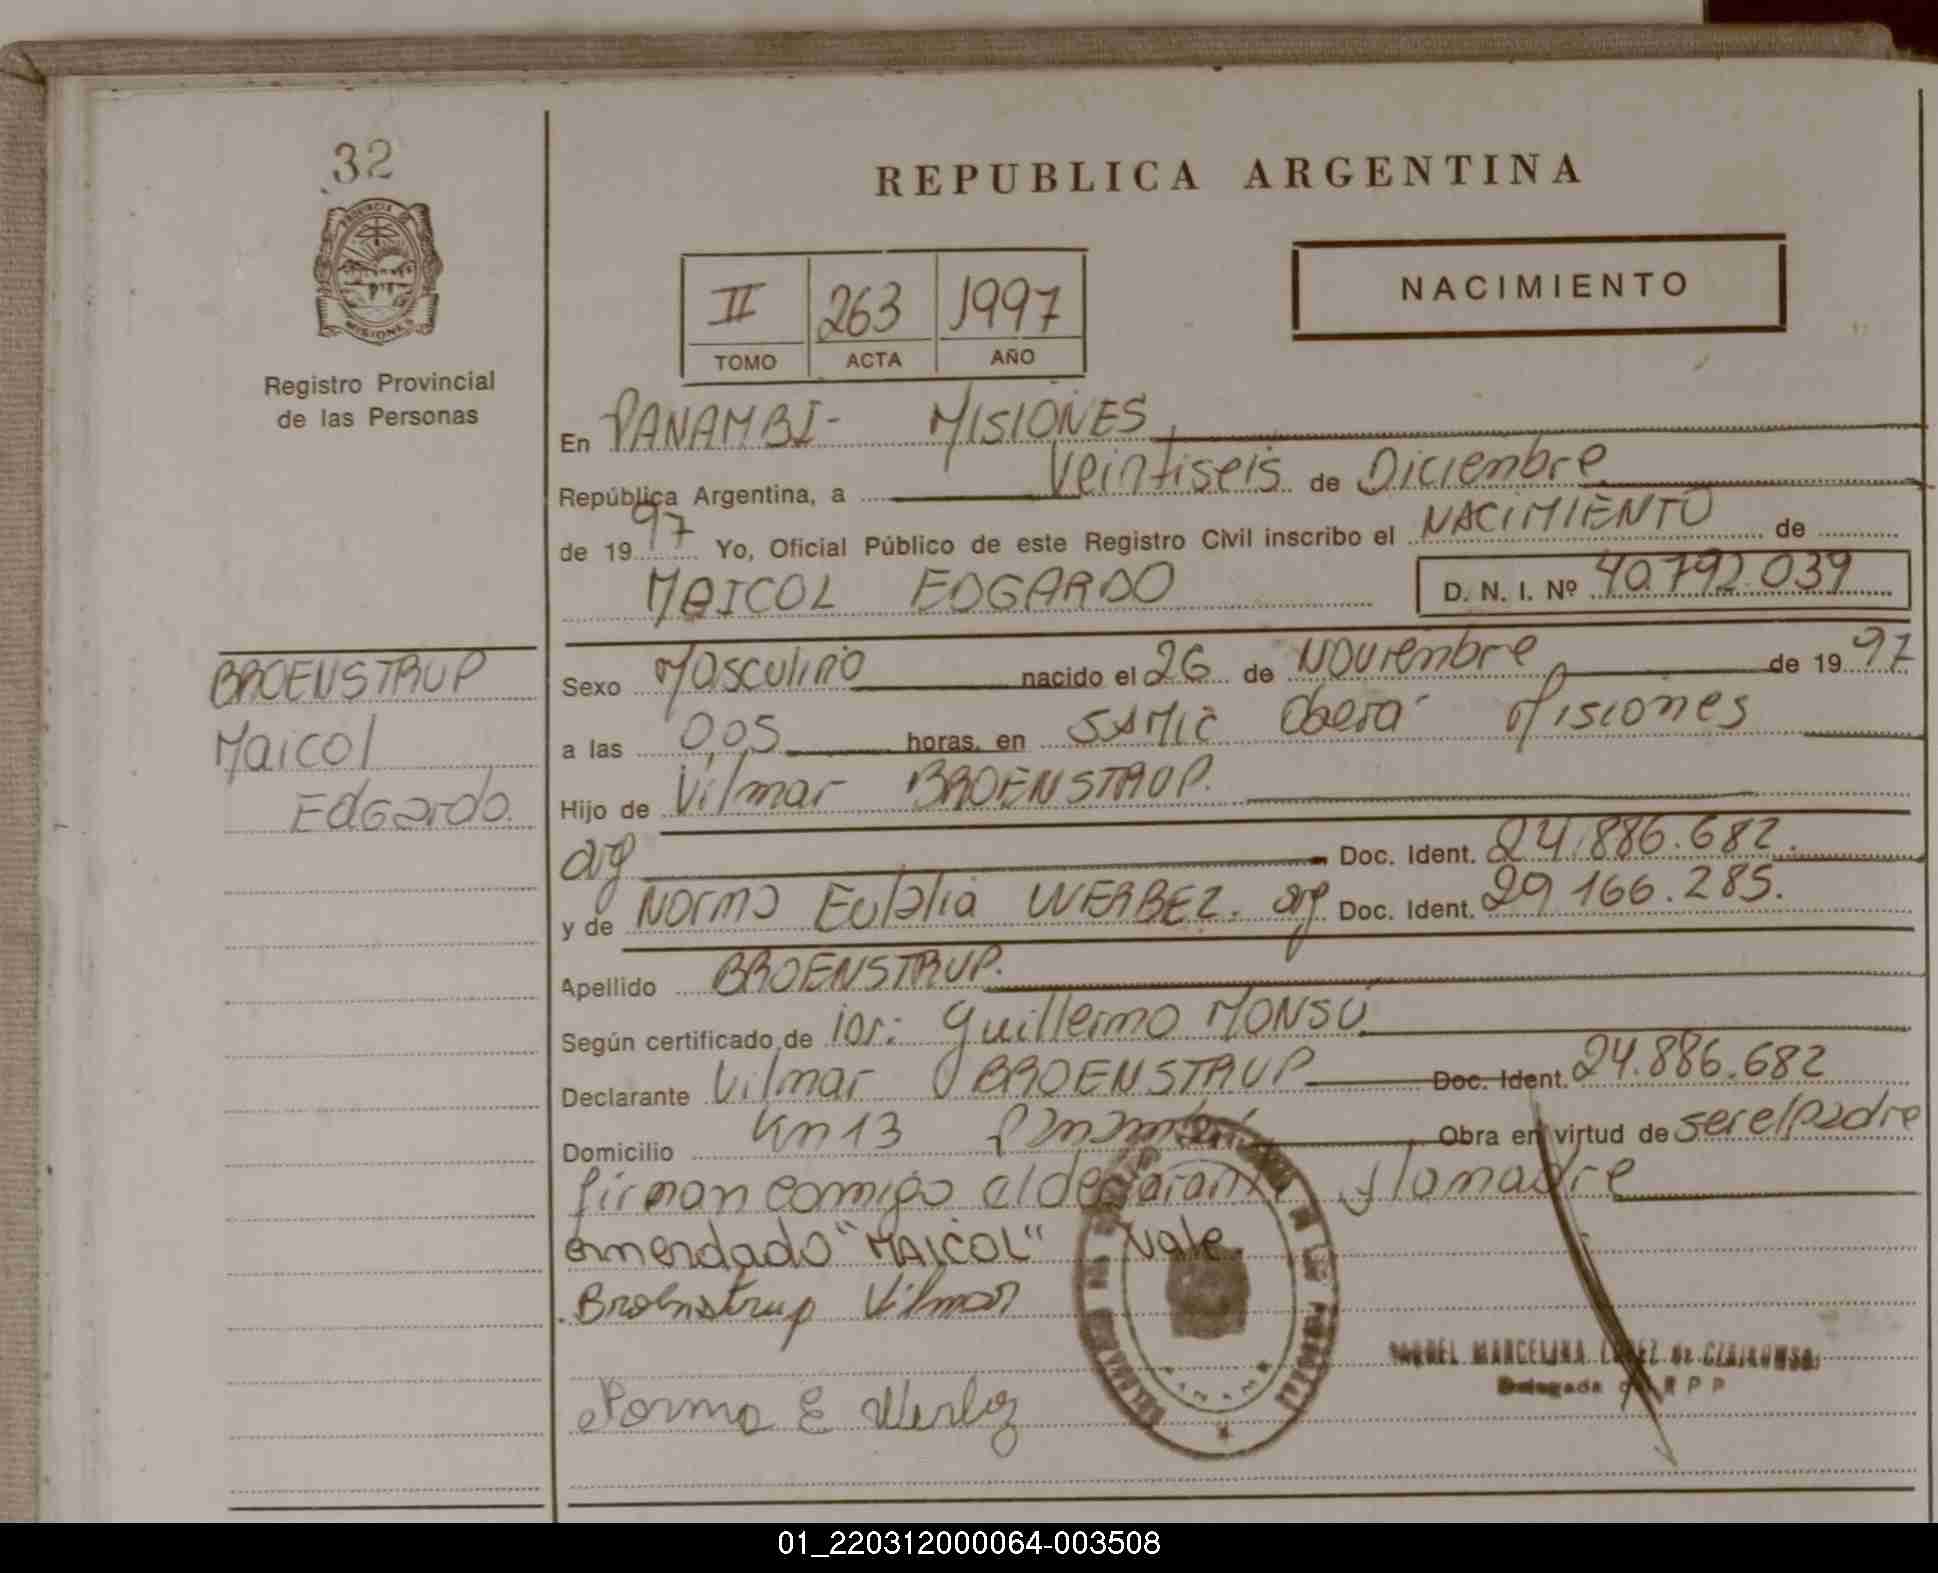 32
PROVINCIA DE
MISIONES
Registro Provincial
de las Personas
REPUBLICA ARGENTINA
NACIMIENTO
II 263 1997
TOMO ACTA AÑO
En PANAMBI- MISIONES
República Argentina, a veintiseis de Diciembre
de 1997 Yo, Oficial Público de este Registro Civil inscribo el NACIMIENTO de
MAICOL EDGARDO D. N. I. Nº 40.792.039
BROENSTRUP
Maicol
Edgardo.
Sexo Masculino nacido el 26 de Noviembre de 1997
a las 0,05 horas, en SAMIC Oberá Misiones
Hijo de Vilmar BROENSTRUP.
arg Doc. Ident. 24.886.682.
y de Norma Eulalia WERBEZ. arg Doc. Ident. 29 166.285.
Apellido BROENSTRUP.
Según certificado de Guillermo MONSU
Declarante Vilmar BROENSTRUP Doc. Ident. 24.886.682
Domicilio Km 13 Panambí Obra en virtud de ser el padre
firman conmigo el declarante y la madre
enmendado "MAICOL" Vale.
Broenstrup Vilmar
MARCELINA LOPEZ de
Delegada R P P
Norma E Werbez
PANAMBI
01_220312000064-003508